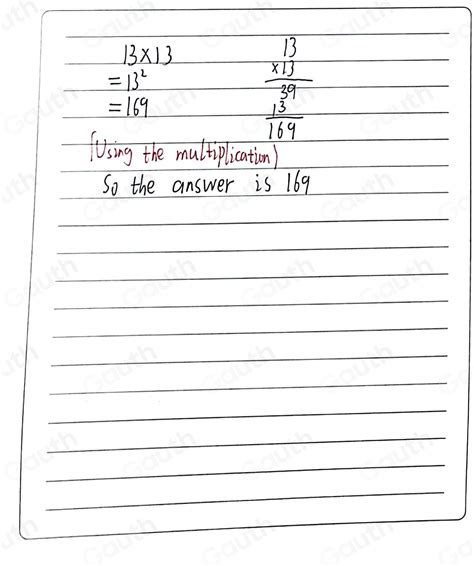 13×13
=13²
=169
13
×13
39
13
169
(Using the multiplication)
So the answer is 169
Gauth